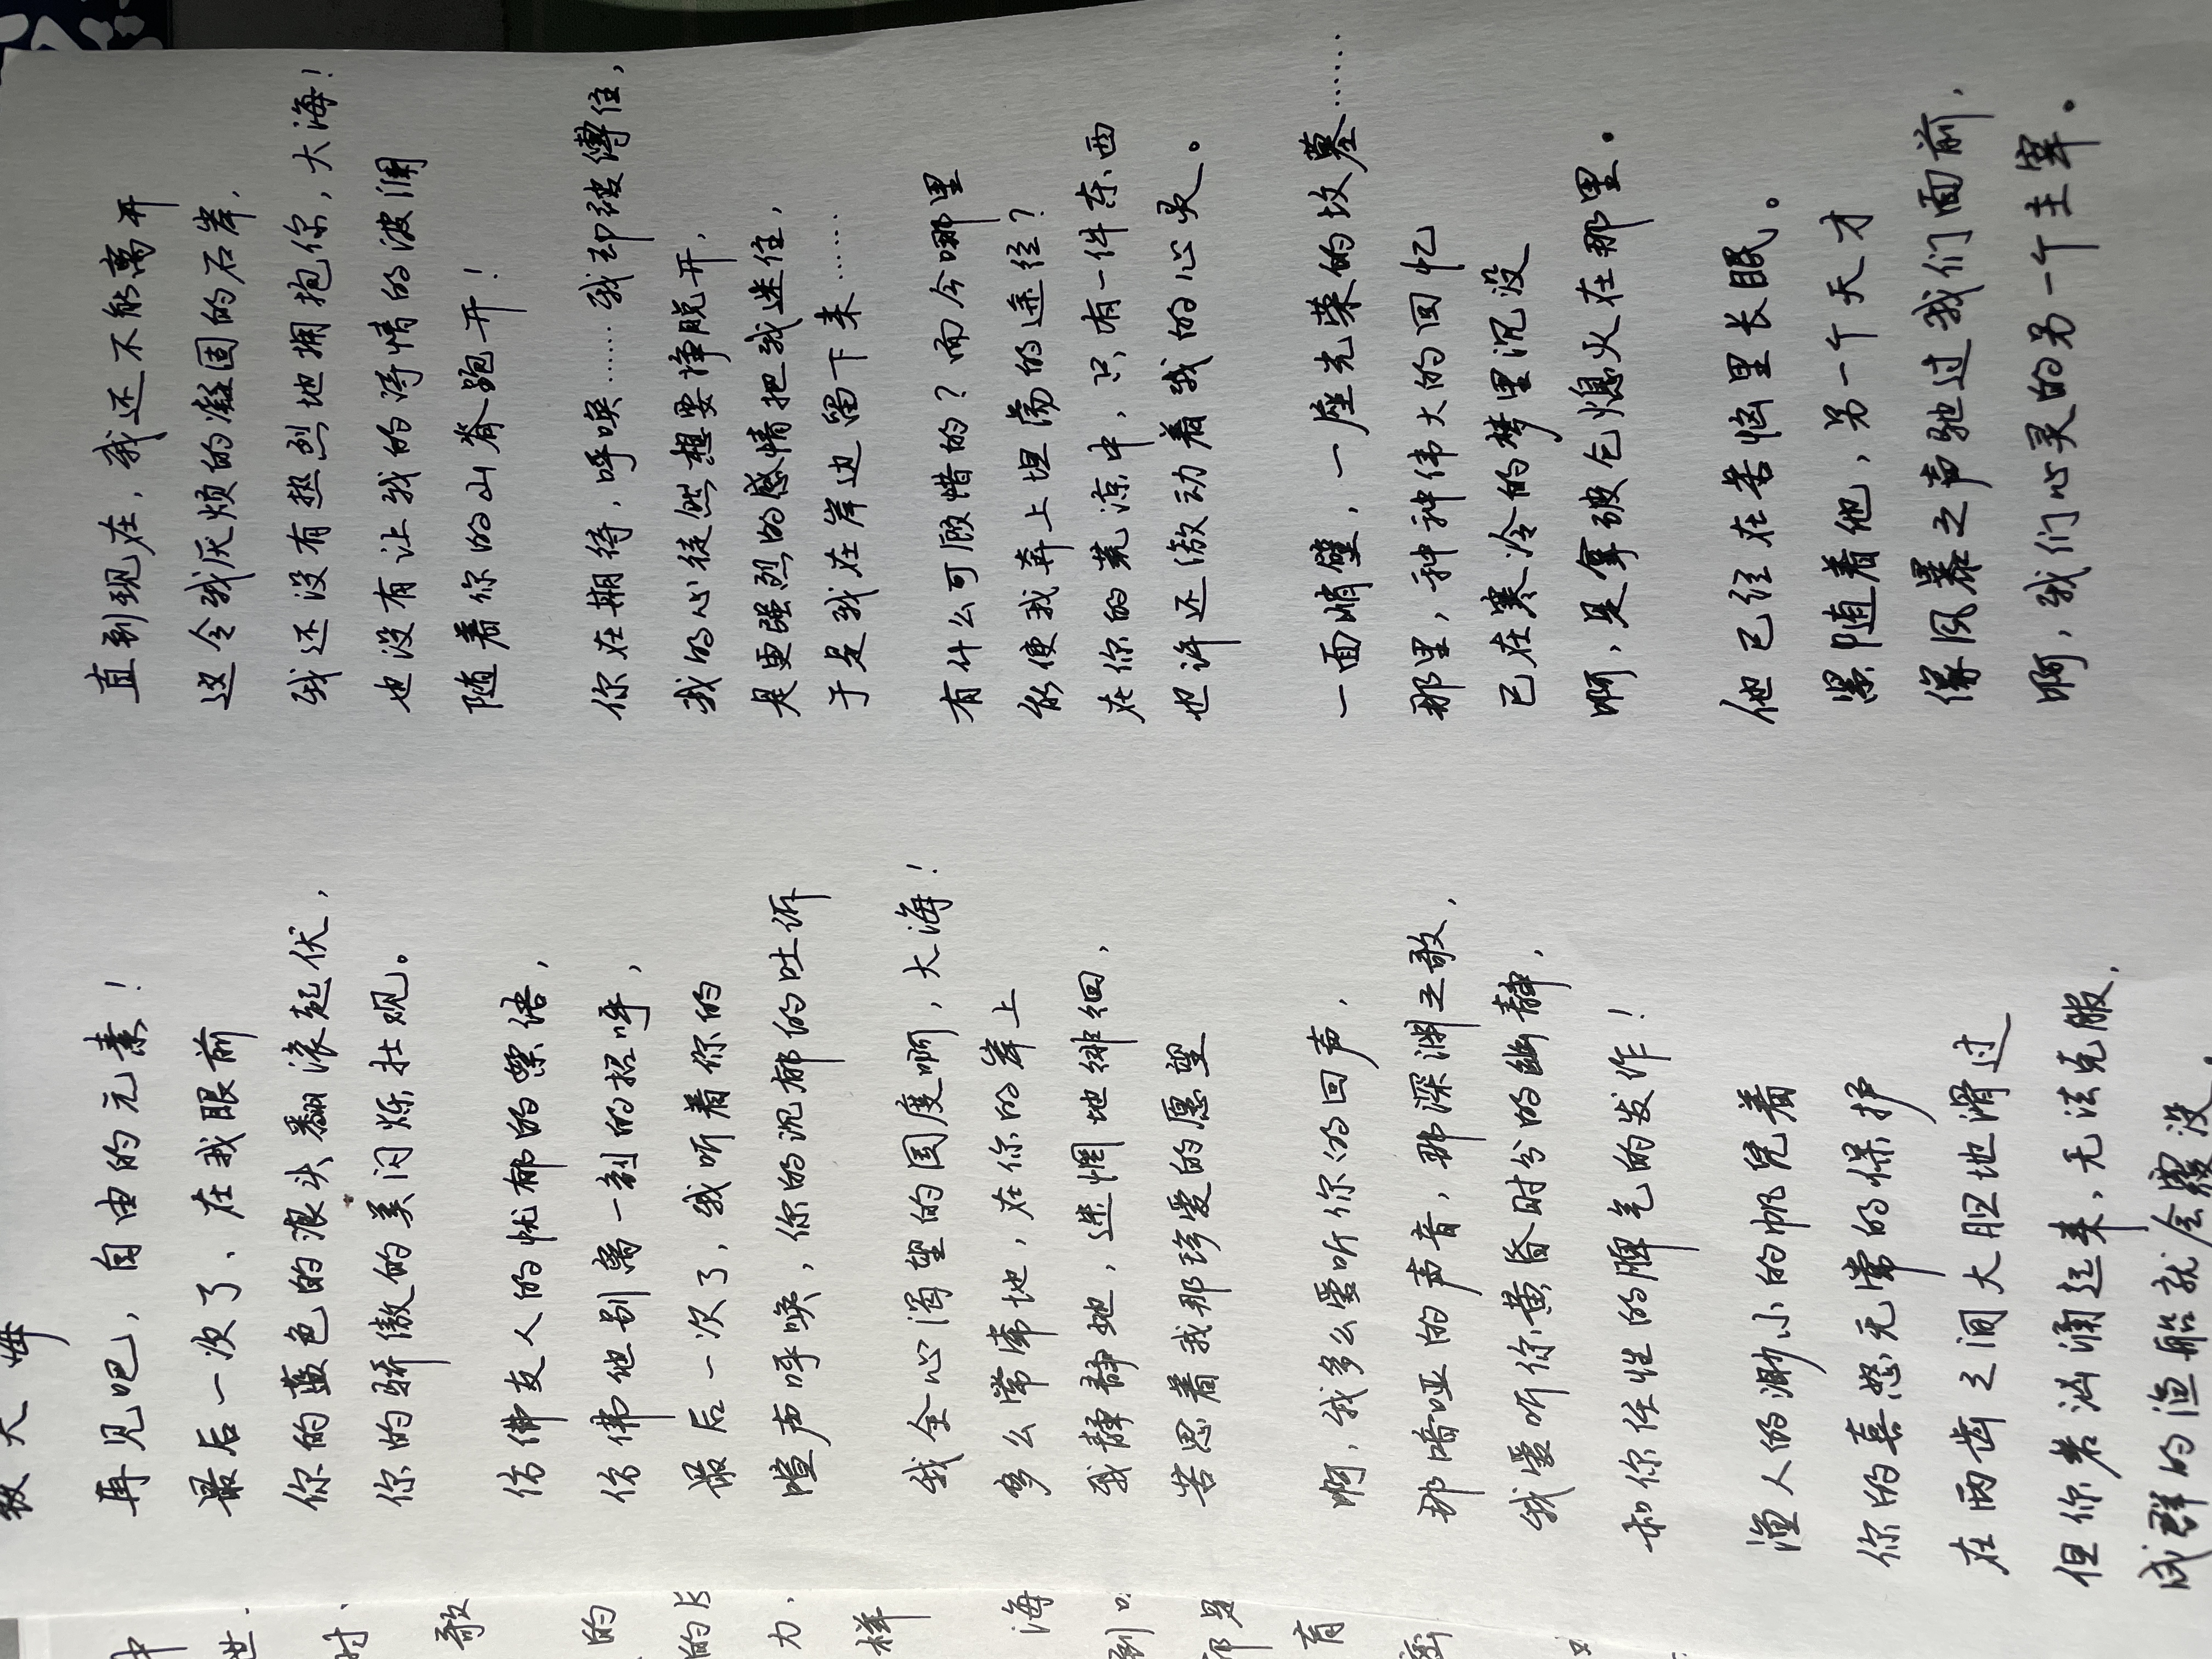 致大海
再见吧，自由的元素！
最后一次了，在我眼前
你的蓝色的浪头翻滚起伏，
你的骄傲的美闪烁壮观。
仿佛友人的忧郁的絮语，
仿佛他别离一刻的招呼，
最后一次了，我听着你的
喧声呼唤，你的沉郁的吐诉
我全心渴望的国度啊，大海！
多么常常地，在你的岸上
我静静地，迷惘地徘徊，
苦思着我那珍爱的愿望
啊，我多么爱听你的回声，
那喑哑的声音，那深渊之歌，
我爱听你黄昏时分的幽静，
和你任性的脾气的发作！
渔人的渺小的帆凭着
你的喜怒无常的保护
在两齿之间大胆地滑过
但你若汹涌起来，无法克服，
成群的渔船就会覆没。
直到现在，我还不能离开
这令我厌烦的凝固的石岸，
我还没有热烈地拥抱你，大海！
也没有让我的诗情的波澜
随着你的山脊跑开！
你在期待，呼唤……我却被缚住，
我的心徒然想要挣脱开，
是更强烈的感情把我迷住，
于是我在岸边留下来……
有什么可顾惜的？而今哪里
能使我奔上坦荡的途径？
在你的荒凉中，只有一件东西
也许还激动着我的心灵。
一面峭壁，一座光荣的坟墓……
那里，种种伟大的回忆
已在寒冷的梦里沉没
啊，是拿破仑熄火在那里。
他已经在苦恼里长眠。
紧随着他，另一个天才
像风暴之声驰过我们面前，
啊，我们心灵的另一个主宰。
中
世
时
歌
的
的
力，
样
海
到
育